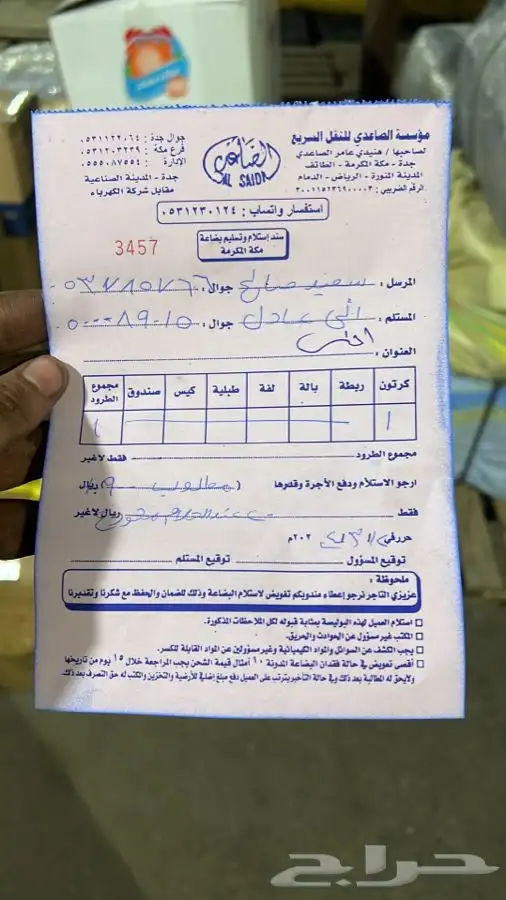 مؤسسة الصاعدي للنقل السريع
لصاحبها / هنيدي عامر الصاعدي
جدة - مكة المكرمة - الطائف
المدينة المنورة - الرياض - الدمام
الرقم الضريبي : ٣٠٠١١٥٢٣٦٩٠٠٠٠٣
AL SAIDI
جوال جدة : ٠٥٣١١٢٢٠٦٤
فرع مكة : ٠٥٣١٢٠٣٢٣٩
الادارة : ٠٥٥٥٠٨٧٥٥٤
جدة - المدينة الصناعية
مقابل شركة الكهرباء
استفسار واتساب : ٠٥٣١٢٣٠١٢٤
سند إستلام وتسليم بضاعة
مكة المكرمة
3457
المرسل : سعيد صالح جوال :
المستلم : عادل جوال :
العنوان :
كرتون ربطة بالة لفة طبلية كيس صندوق مجموع الطرود
١ ١
مجموع الطرود فقط لاغير
ارجو الاستلام ودفع الأجرة وقدرها ( مطلوب ) ريال
فقط ريال لاغير
حرر في ٢٠٢م
توقيع المسؤول توقيع المستلم
ملحوظة :
عزيزي التاجر نرجو إعطاء مندوبكم تفويض لاستلام البضاعة وذلك للضمان والحفظ مع شكرنا وتقديرنا
استلام العميل لهذه البوليصة بمثابة قبوله لكل الملاحظات المذكورة.
المكتب غير مسؤول عن الحوادث والحريق.
يجب الكشف عن السوائل والمواد الكيميائية وغير مسؤولين عن المواد القابلة للكسر.
أقصى تعويض في حالة فقدان البضاعة المدونة ١٠ أمثال قيمة الشحن يجب المراجعة خلال ١٥ يوم من تاريخها
ولايحق له المطالبة بعد ذلك وفي حالة التأخير يترتب على العميل دفع مبلغ إضافي للأرضية والتخزين والمكتب له حق التصرف بعد ذلك.
حراج